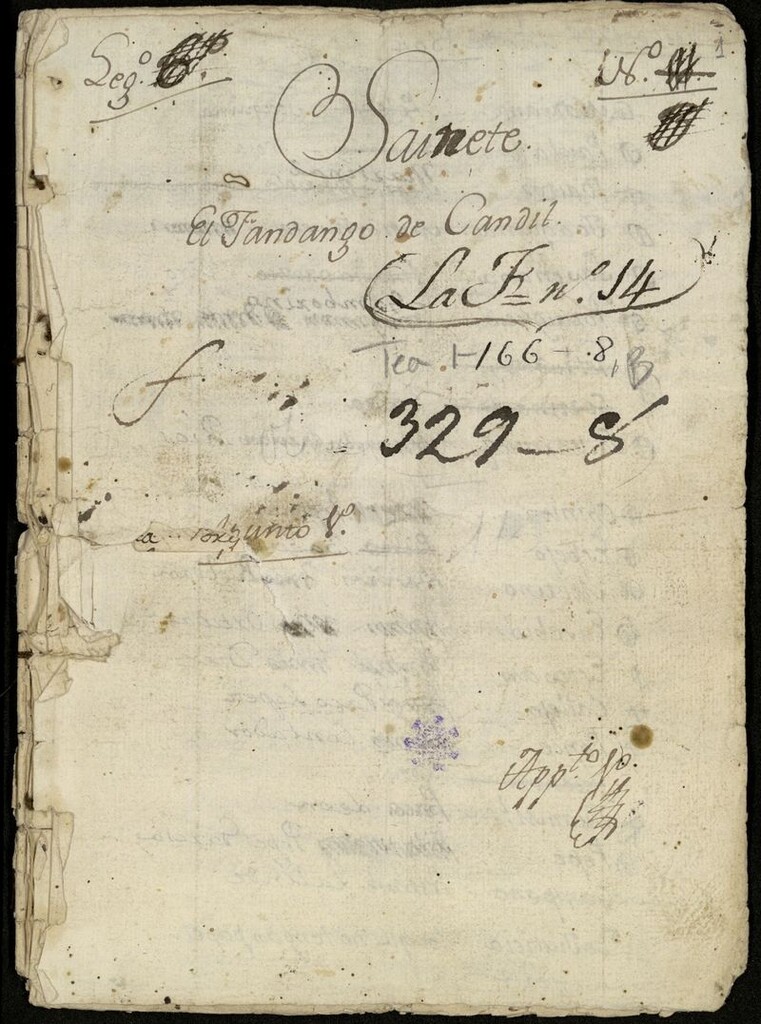 Leg.º
N.º
1
Sainete.
El Fandango de Candil.
La F. n.º 14
Tea 1-166-8, B
329-8
Apunto 1.º
App.to 1.º